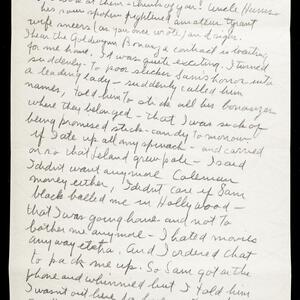 look at them Uncle
his own spoken frightened amateur tyrant
wife sneers (as you once wrote) and sighs.
I hear the Goldwyn Bonanza contract is waiting
for me haunt. It was quite exciting. I turned
suddenly to poor slicker Sam's horror into
a leading lady — suddenly called him
names, told him to stick all his bonanzas
where they belonged — that I was sick of
being promised stick-candy tomorrow
if I ate up all my spinach — and carried
on so that Island grew pale — I said
I didn't want anymore Coleman
money either, I didn't care if Sam
black balled me in Hollywood —
that I was going home and not to
bother me anymore — I hated movies
anyway etcha. And I ordered chat
to pack me up. So Sam got on the
phone and whimmed but I told him
I wasn't out here for